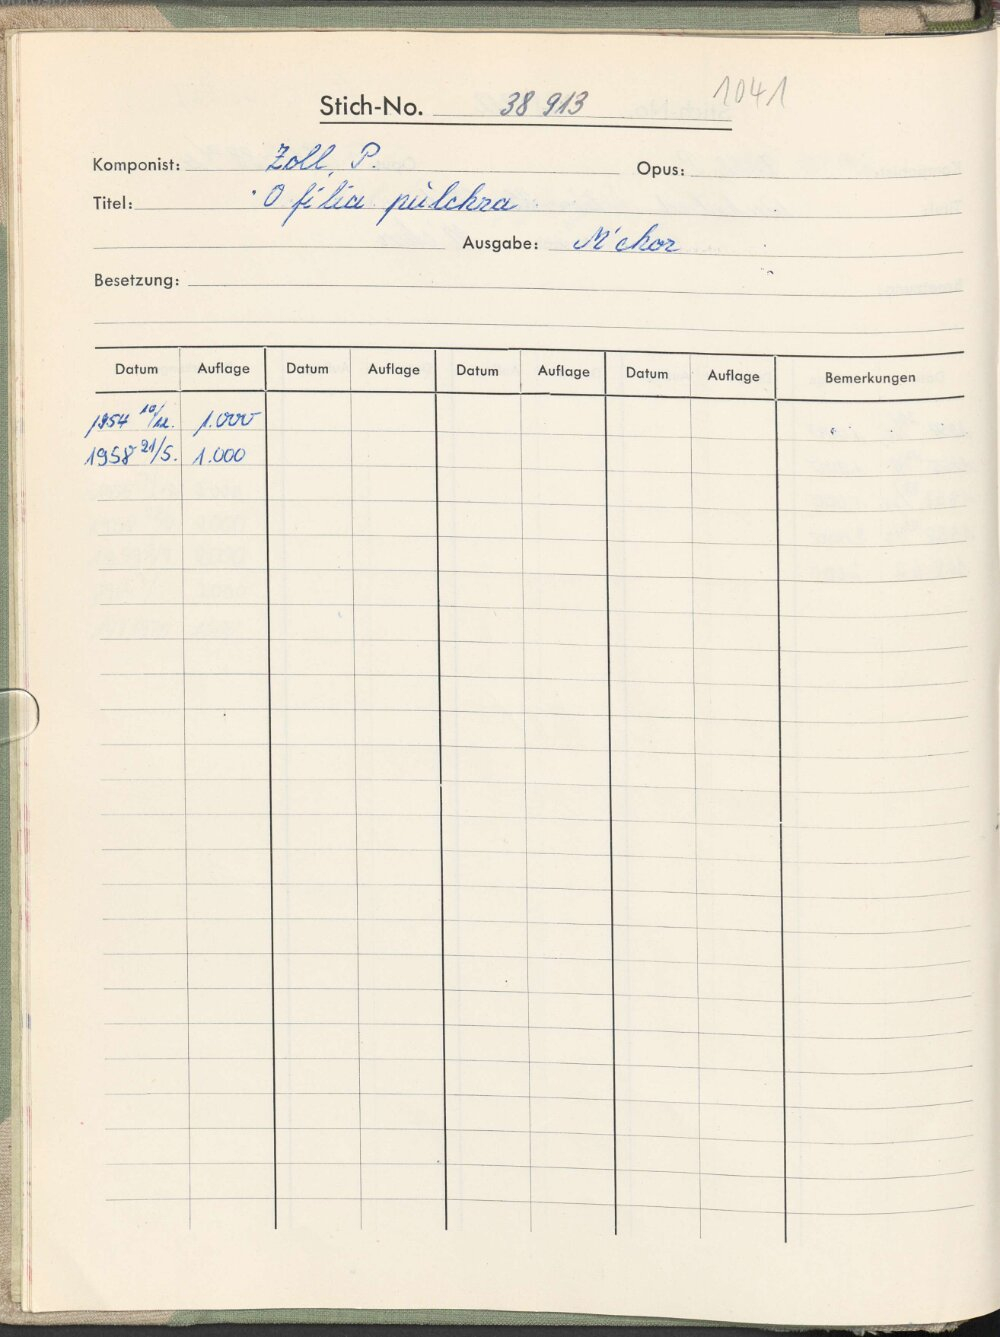 1041
Stich-No. 38 913
Komponist: Zoll, P. Opus:
Titel: O filia pulchra
Ausgabe: M'chor
Besetzung:
Datum Auflage Datum Auflage Datum Auflage Datum Auflage Bemerkungen
1954 10/12. 1.000
1958 21/5. 1.000